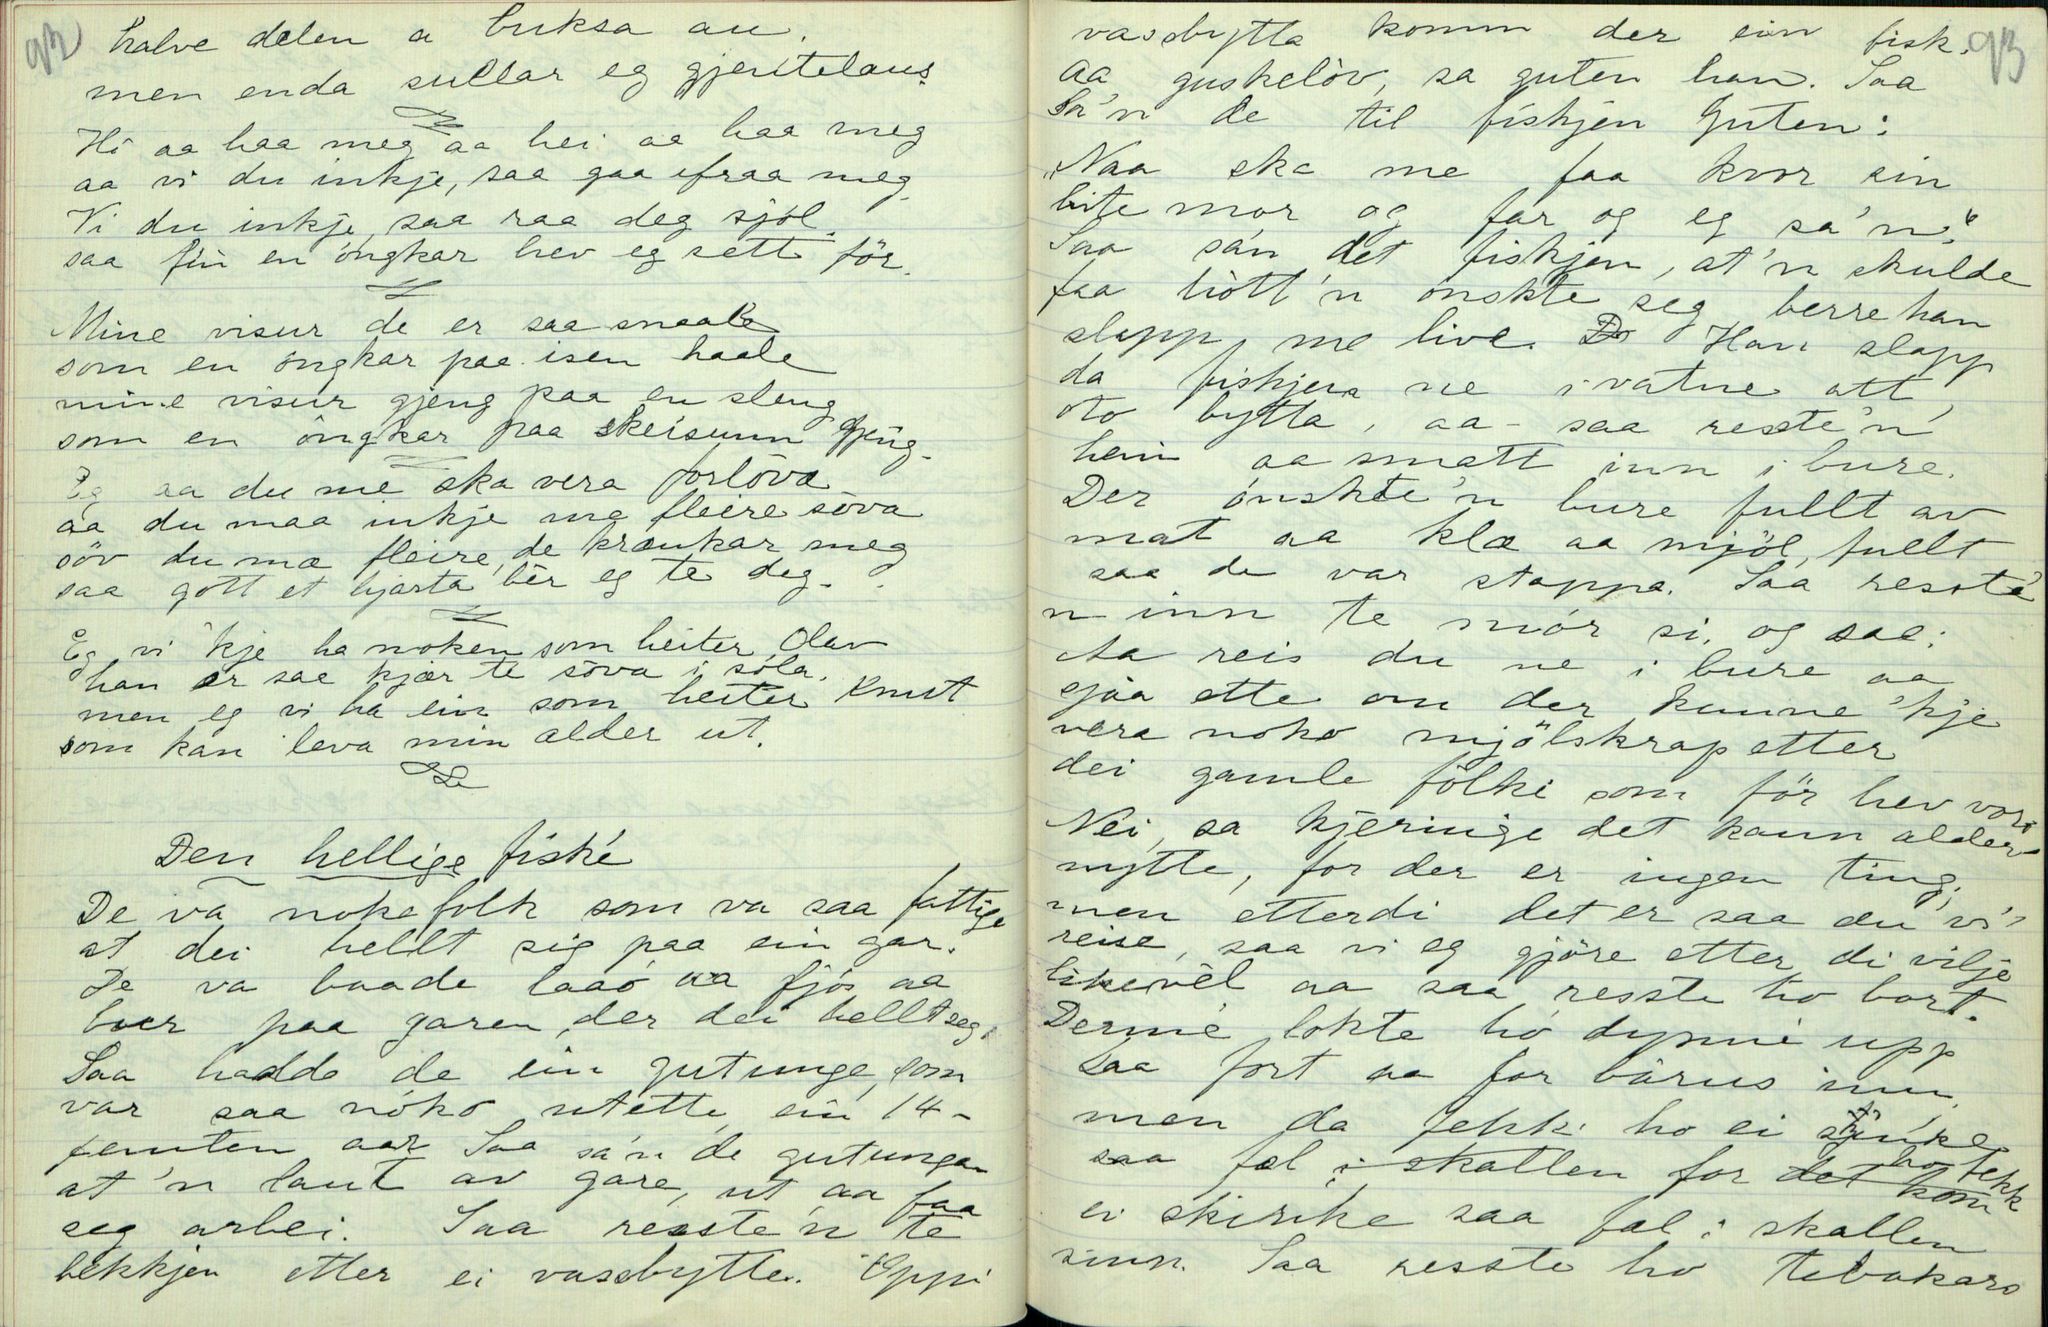 92
halve delen a buksa au.
men enda sullar eg gjentelaus.
Hi aa haa meg aa hei aa haa meg
aa vi du inkje, saa gaa ifraa meg.
Vi du inkje, saa raa deg sjöl.
saa fin en ongkar hev eg sett för.
Mine visur de er saa smaale
som en ongkar paa isen haale
mine visur gjeng paa en sleng
som en ongkar paa skeisunn gjeng.
Eg aa du me ska vera forlova
aa du maa inkje ma fleire söva
söv du ma fleire, de krænkar meg
saa gott et hjarta bêr eg te deg.
Eg vi 'kje ha noken som heiter Olav
han er saa kjær te söva i sola.
men eg vi ha ein som heiter Knut
som kan leva min alder ut.
Den hellige fiské
De va noke folk som va saa fattige
at dei hellt sig paa ein gar.
De va baade laao aa fjös aa
buer paa garen der dei hellt seg.
Saa hadde de ein gutunge, som
var saa noko utette ein 14-
femten aar Saa sa'n de gutungan
at 'n laut av gare, ut aa faa
seg arbei. Saa resste'n te
bekkjen etter ei vassbytte. Oppi
93
vassbytta komm der ein fisk.
Aa, guskelov, sa guten han. Saa
sa'n de til fiskjen guten:
"Naa ska me faa kvor ein
bite mor og far og eg sa'n."
Saa sa'n det fiskjen, at'n skulde
faa hott'n onskte seg berre han
slapp me live. Han slapp
da fiskjen ne i vatne att
oto bytta, aa saa resste'n
heim aa smatt inn i bure.
Der onskte'n bure fullt av
mat aa klæ aa mjöl, fullt
saa de var stappa. Saa resste'
n inn te mor si, og sae:
Aa reis du ne i bure aa
sjaa ette om der kunne 'kje
vera noko mjölskrap etter
dei gamle folki som för hev vori
Nei, sa kjeringe det kann alder
nytte, for der er ingen ting,
men etterdi det er saa du vi'
reise, saa vi eg gjöre etter di vilje
likevêl aa saa resste ho bort.
Dermé lokte ho dynni upp
saa fort aa for bårus inn,
men da fekk ho ei
saa fæl i skallen for det kom ho fekk
ei skirike saa fæl i skallen
sinn. Saa resste ho tebakars